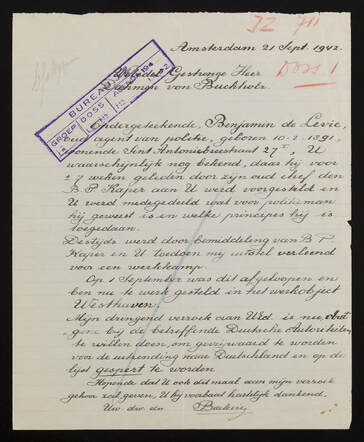 IZ
Doss 1
Amsterdam 21 Sept. 1942.
BUREAU
GROEP DOSS
Weledel Gestrenge Heer
Dahmen von Buckholz
Ondergeteekende, Benjamin de Levie,
oud agent van politie, geboren 10-2-1891,
wonende Sint Antoniebreestraat 27 U
waarschijnlijk nog bekend, daar hij voor
± 7 weken geleden door zijn oud chef den
B P. Kaper aan U werd voorgesteld en
U werd medegedeeld wat voor politieman
hij geweest is en welke principes hij is
toegedaan.
Destijds werd door bemiddeling van B P.
Kaper en U toedoen mij uitstel verleend
voor een werkkamp.
Op 1 September was dit afgeloopen en
ben nu te werk gesteld in het werkobject
Westhaven.
Mijn dringend verzoek aan UEd. is nu
gene bij de betreffende Duitsche Autoriteiten
te willen doen, om gevrijwaard te worden
voor de uitzending naar Duitschland en op de
lijst gespert te worden
Hopende dat U ook dit maal aan mijn verzoek
gehoor zal geven, U bij voorbaat hartelijk dankend,
Uw. dw. dn.